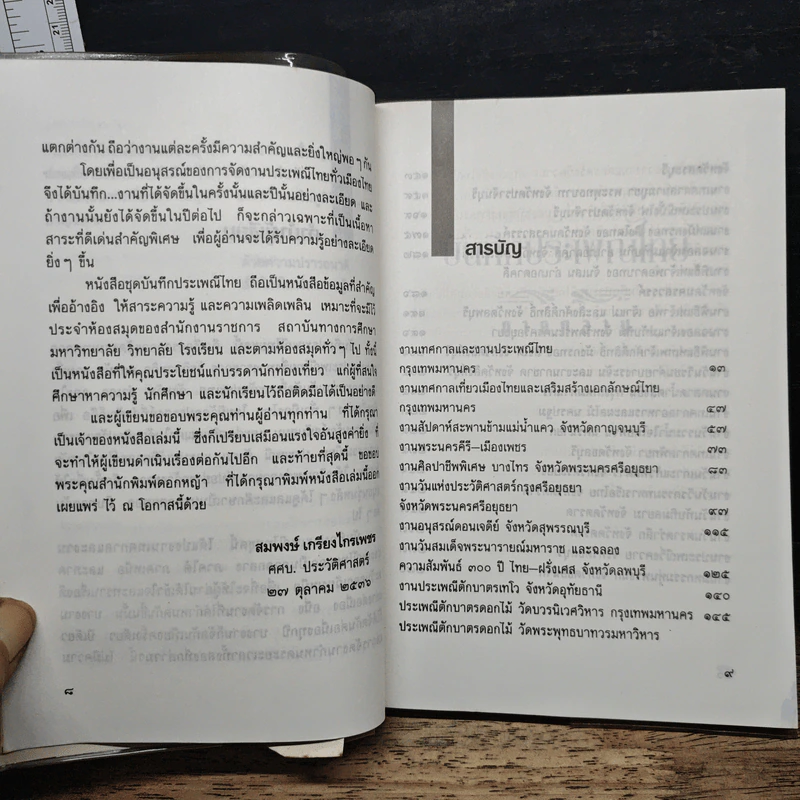 แตกต่างกัน ถือว่างานแต่ละครั้งมีความสำคัญและยิ่งใหญ่พอ ๆ กัน
โดยเพื่อเป็นอนุสรณ์ของการจัดงานประเพณีไทยทั่วเมืองไทย
จึงได้บันทึก...งานที่ได้จัดขึ้นในครั้งนั้นและปีนั้นอย่างละเอียด และ
ถ้างานนั้นยังได้จัดขึ้นในปีต่อไป ก็จะกล่าวเฉพาะที่เป็นเนื้อหา
สาระที่ดีเด่นสำคัญพิเศษ เพื่อผู้อ่านจะได้รับความรู้อย่างละเอียด
ยิ่ง ๆ ขึ้น
หนังสือชุดบันทึกประเพณีไทย ถือเป็นหนังสือข้อมูลที่สำคัญ
เพื่ออ้างอิง ให้สาระความรู้ และความเพลิดเพลิน เหมาะที่จะมีไว้
ประจำห้องสมุดของสำนักงานราชการ สถาบันทางการศึกษา
มหาวิทยาลัย วิทยาลัย โรงเรียน และตามห้องสมุดทั่ว ๆ ไป ทั้งนี้
เป็นหนังสือที่ให้คุณประโยชน์แก่บรรดานักท่องเที่ยว แก่ผู้ที่สนใจ
ศึกษาหาความรู้ นักศึกษา และนักเรียนไว้ถือติดมือได้เป็นอย่างดี
และผู้เขียนขอขอบพระคุณท่านผู้อ่านทุกท่าน ที่ได้กรุณา
เป็นเจ้าของหนังสือเล่มนี้ ซึ่งก็เปรียบเสมือนแรงใจอันสูงค่ายิ่ง ที่
จะทำให้ผู้เขียนดำเนินเรื่องต่อกันไปอีก และท้ายที่สุดนี้ ขอขอบ
พระคุณสำนักพิมพ์ดอกหญ้า ที่ได้กรุณาพิมพ์หนังสือเล่มนี้ออก
เผยแพร่ ไว้ ณ โอกาสนี้ด้วย
สมพงษ์ เกรียงไกรเพชร
ศศบ. ประวัติศาสตร์
๒๗ ตุลาคม ๒๕๓๖
๘
สารบัญ
งานเทศกาลและงานประเพณีไทย
กรุงเทพมหานคร ๑๓
งานเทศกาลเที่ยวเมืองไทยและเสริมสร้างเอกลักษณ์ไทย
กรุงเทพมหานคร ๔๗
งานสัปดาห์สะพานข้ามแม่น้ำแคว จังหวัดกาญจนบุรี ๕๗
งานพระนครคีรี—เมืองเพชร ๗๓
งานศิลปาชีพพิเศษ บางไทร จังหวัดพระนครศรีอยุธยา ๘๓
งานวันแห่งประวัติศาสตร์กรุงศรีอยุธยา
จังหวัดพระนครศรีอยุธยา ๙๗
งานอนุสรณ์ดอนเจดีย์ จังหวัดสุพรรณบุรี ๑๑๕
งานวันสมเด็จพระนารายณ์มหาราช และฉลอง
ความสัมพันธ์ ๓๐๐ ปี ไทย—ฝรั่งเศส จังหวัดลพบุรี ๑๒๕
งานประเพณีตักบาตรเทโว จังหวัดอุทัยธานี ๑๔๐
ประเพณีตักบาตรดอกไม้ วัดบวรนิเวศวิหาร กรุงเทพมหานคร ๑๔๕
ประเพณีตักบาตรดอกไม้ วัดพระพุทธบาทวรมหาวิหาร
๙